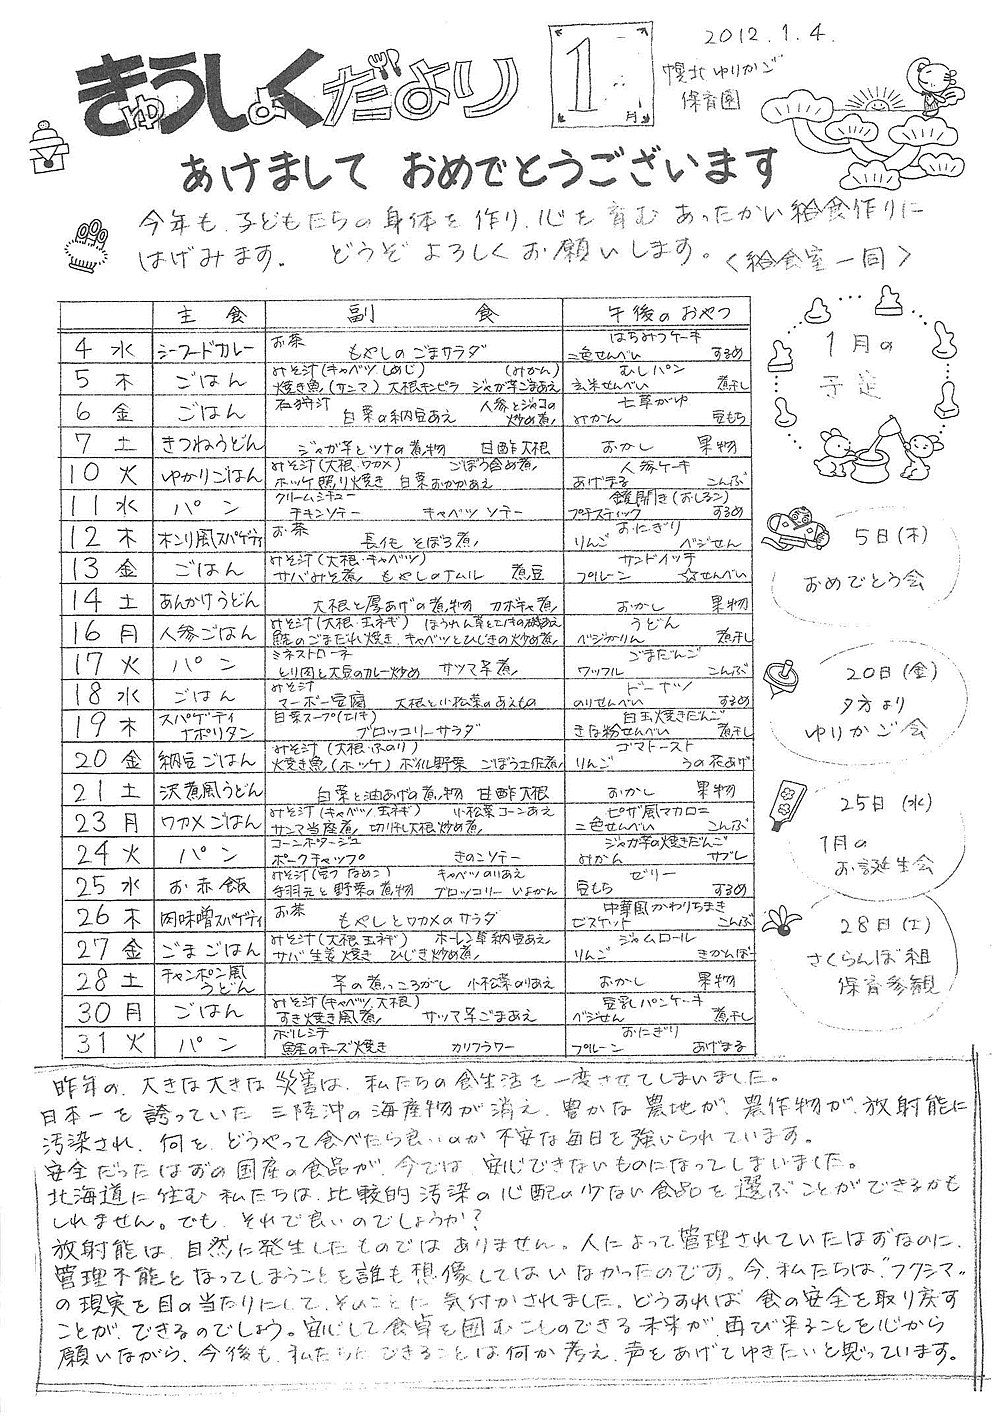 きゅうしょくだより
1月
2012.1.4.
幌北ゆりかご
保育園
あけまして おめでとうございます
今年も、子どもたちの身体を作り、心を育む あったかい給食作りに
はげみます。 どうぞ よろしくお願いします。 〈給食室一同〉
主食 副食 午後のおやつ
4 水 シーフードカレー お茶 もやしのごまサラダ はちみつケーキ 二色せんべい するめ
5 木 ごはん みそ汁(キャベツ しめじ) (みかん) 焼き魚(サンマ) 大根キンピラ ジャガ芋ごまあえ むしパン 玄米せんべい 煮干し
6 金 ごはん 石狩汁 白菜の納豆あえ 人参とジャコの炒め煮 七草がゆ みかん 豆もち
7 土 きつねうどん ジャガ芋とツナの煮物 甘酢大根 おかし 果物
10 火 ゆかりごはん みそ汁(大根・ワカメ) ごぼう含め煮 ホッケ照り焼き 白菜おかかあえ 人参ケーキ あげまる こんぶ
11 水 パン クリームシチュー チキンソテー キャベツソテー 鏡開き(おしるこ) プチスティック するめ
12 木 キンリ風スパゲティ お茶 長いも そぼろ煮 おにぎり りんご ベジせん
13 金 ごはん みそ汁(大根・キャベツ) サバみそ煮 もやしのナムル 煮豆 サンドイッチ プルーン ☆せんべい
14 土 あんかけうどん 大根と厚あげの煮物 カボチャ煮 おかし 果物
16 月 人参ごはん みそ汁(大根・玉ネギ) ほうれん草とエノキの磯あえ 鮭のごまだれ焼き キャベツとひじきの炒め煮 うどん ベジかりん 煮干し
17 火 パン ミネストローネ とり肉と大豆のカレー炒め サツマ芋煮 ごまだんご ワッフル こんぶ
18 水 ごはん みそ汁 マーボー豆腐 大根と小松菜のあえもの ドーナツ のりせんべい するめ
19 木 スパゲティナポリタン 白菜スープ(エノキ) ブロッコリーサラダ 白玉焼きだんご きな粉せんべい 煮干し
20 金 納豆ごはん みそ汁(大根・ふのり) 焼き魚(ホッケ) ボイル野菜 ごぼう土佐煮 ゴマトースト りんご うの花あげ
21 土 沢煮風うどん 白菜と油あげの煮物 甘酢大根 おかし 果物
23 月 ワカメごはん みそ汁(キャベツ 玉ネギ) 小松菜コーンあえ サンマ当座煮 切り干し大根炒め煮 ピザ風マカロニ 二色せんべい こんぶ
24 火 パン コーンポタージュ ポークチャップ きのこソテー ジャガ芋の焼きだんご みかん サブレ
25 水 お赤飯 みそ汁(豆フ なめこ) キャベツのりあえ 手羽元と野菜の煮物 ブロッコリー いよかん ゼリー 豆もち するめ
26 木 肉味噌スパゲティ お茶 もやしとワカメのサラダ 中華風かわりちまき ビスケット こんぶ
27 金 ごまごはん みそ汁(大根 玉ネギ) ホーレン草納豆あえ サバ生姜焼き ひじき炒め煮 ジャムロール りんご きかんぼー
28 土 チャンポン風うどん 芋の煮っころがし 小松菜のりあえ おかし 果物
30 月 ごはん みそ汁(キャベツ、大根) すき焼き風煮 サツマ芋ごまあえ 豆乳パンケーキ ベジせん 煮干し
31 火 パン ボルシチ 鮭のチーズ焼き カリフラワー おにぎり プルーン あげまる
1月の
予定
5日(木)
おめでとう会
20日(金)
夕方より
ゆりかご会
25日(水)
1月の
お誕生会
28日(土)
さくらんぼ組
保育参観
昨年の、大きな大きな災害は、私たちの食生活を一変させてしまいました。
日本一を誇っていた 三陸沖の海産物が消え、豊かな農地が、農作物が、放射能に
汚染され、何を、どうやって食べたら良いのか不安な毎日を強いられています。
安全だったはずの国産の食品が、今では、安心できないものになってしまいました。
北海道に住む私たちは、比較的汚染の心配の少ない食品を選ぶことができるかも
しれません。でも、それで良いのでしょうか?
放射能は、自然に発生したものではありません。人によって管理されていたはずなのに、
管理不能となってしまうことを誰も想像してはいなかったのです。今、私たちは、“フクシマ”
の現実を目の当たりにして、そのことに気付かされました。どうすれば食の安全を取り戻す
ことが、できるのでしょう。安心して食卓を囲むことのできる未来が、再び来ることを心から
願いながら、今後も、私たちにできることは何か考え、声をあげてゆきたいと思っています。